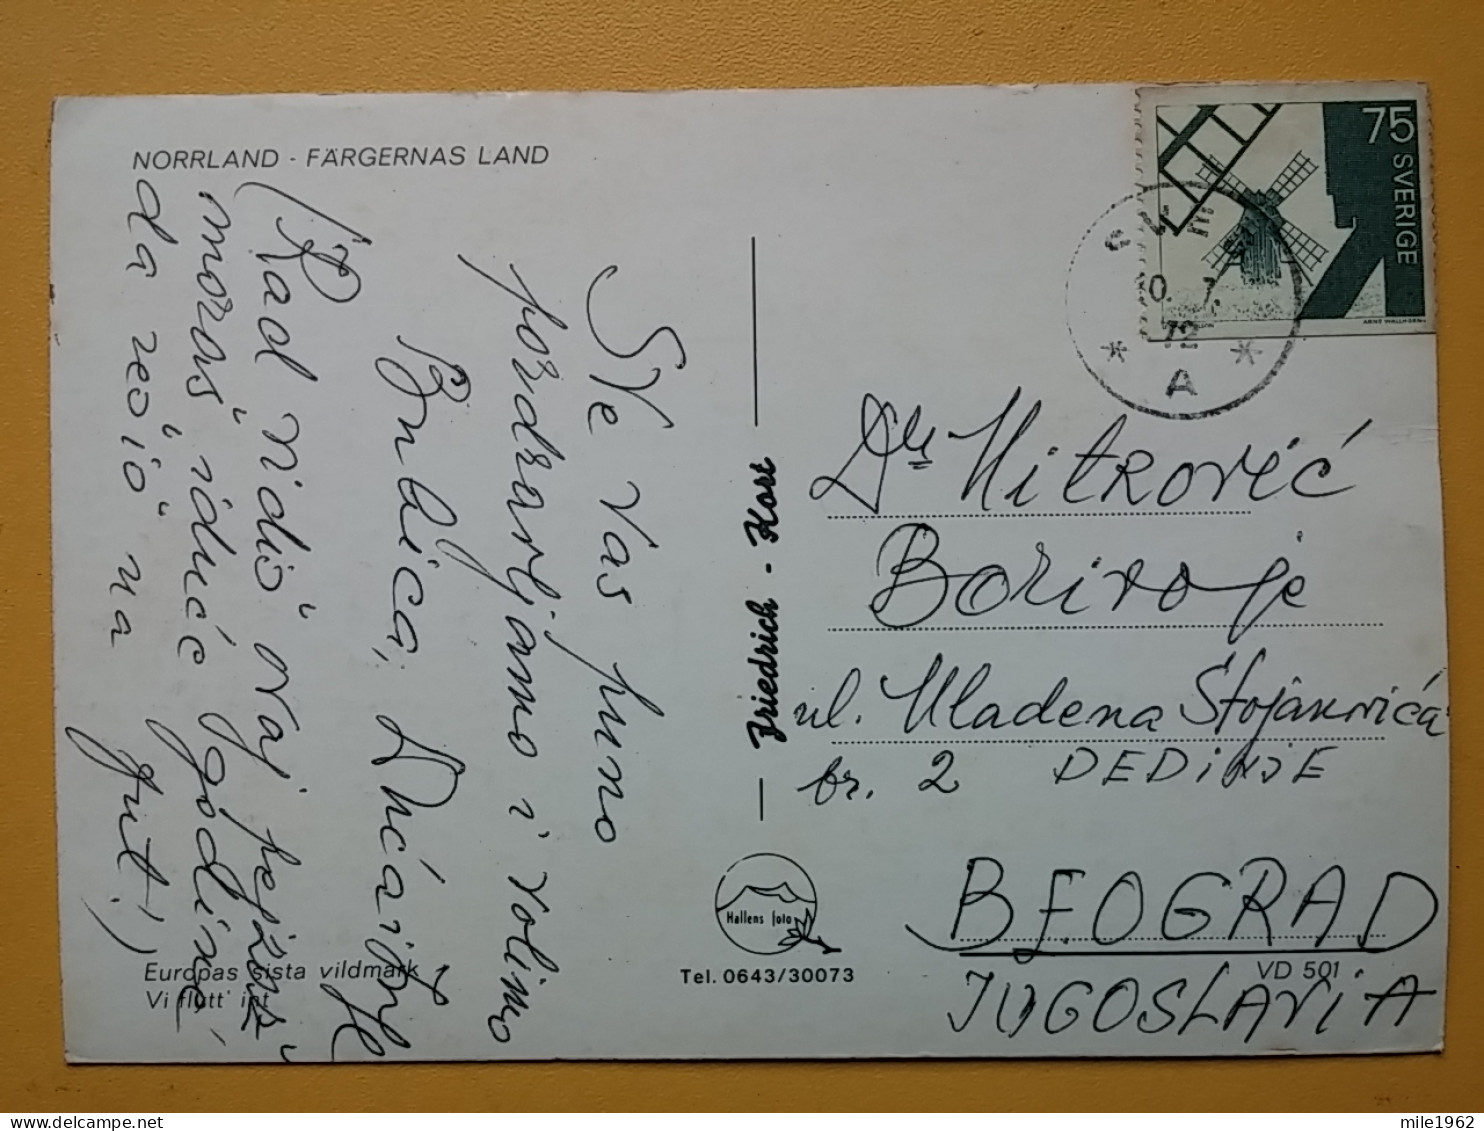 NORRLAND - FÄRGERNAS LAND
Sve Vas puno
pozdravljamo i volimo
Bublica,
(Kad vidiš ovaj pejzaž
moraš iduće godine
da rediš na
put!)
Europas sista vildmark
Vi flytt' int
Friedrich - Kort
Hallens foto
Tel. 0643/30073
VD 501
75 SVERIGE
ARNE WALLHORN
SVE
72
A
Dr Mitrović
Borivoje
ul. Mladena Stojanovića
br. 2 DEDINJE
BEOGRAD
JUGOSLAVIA
mile1962